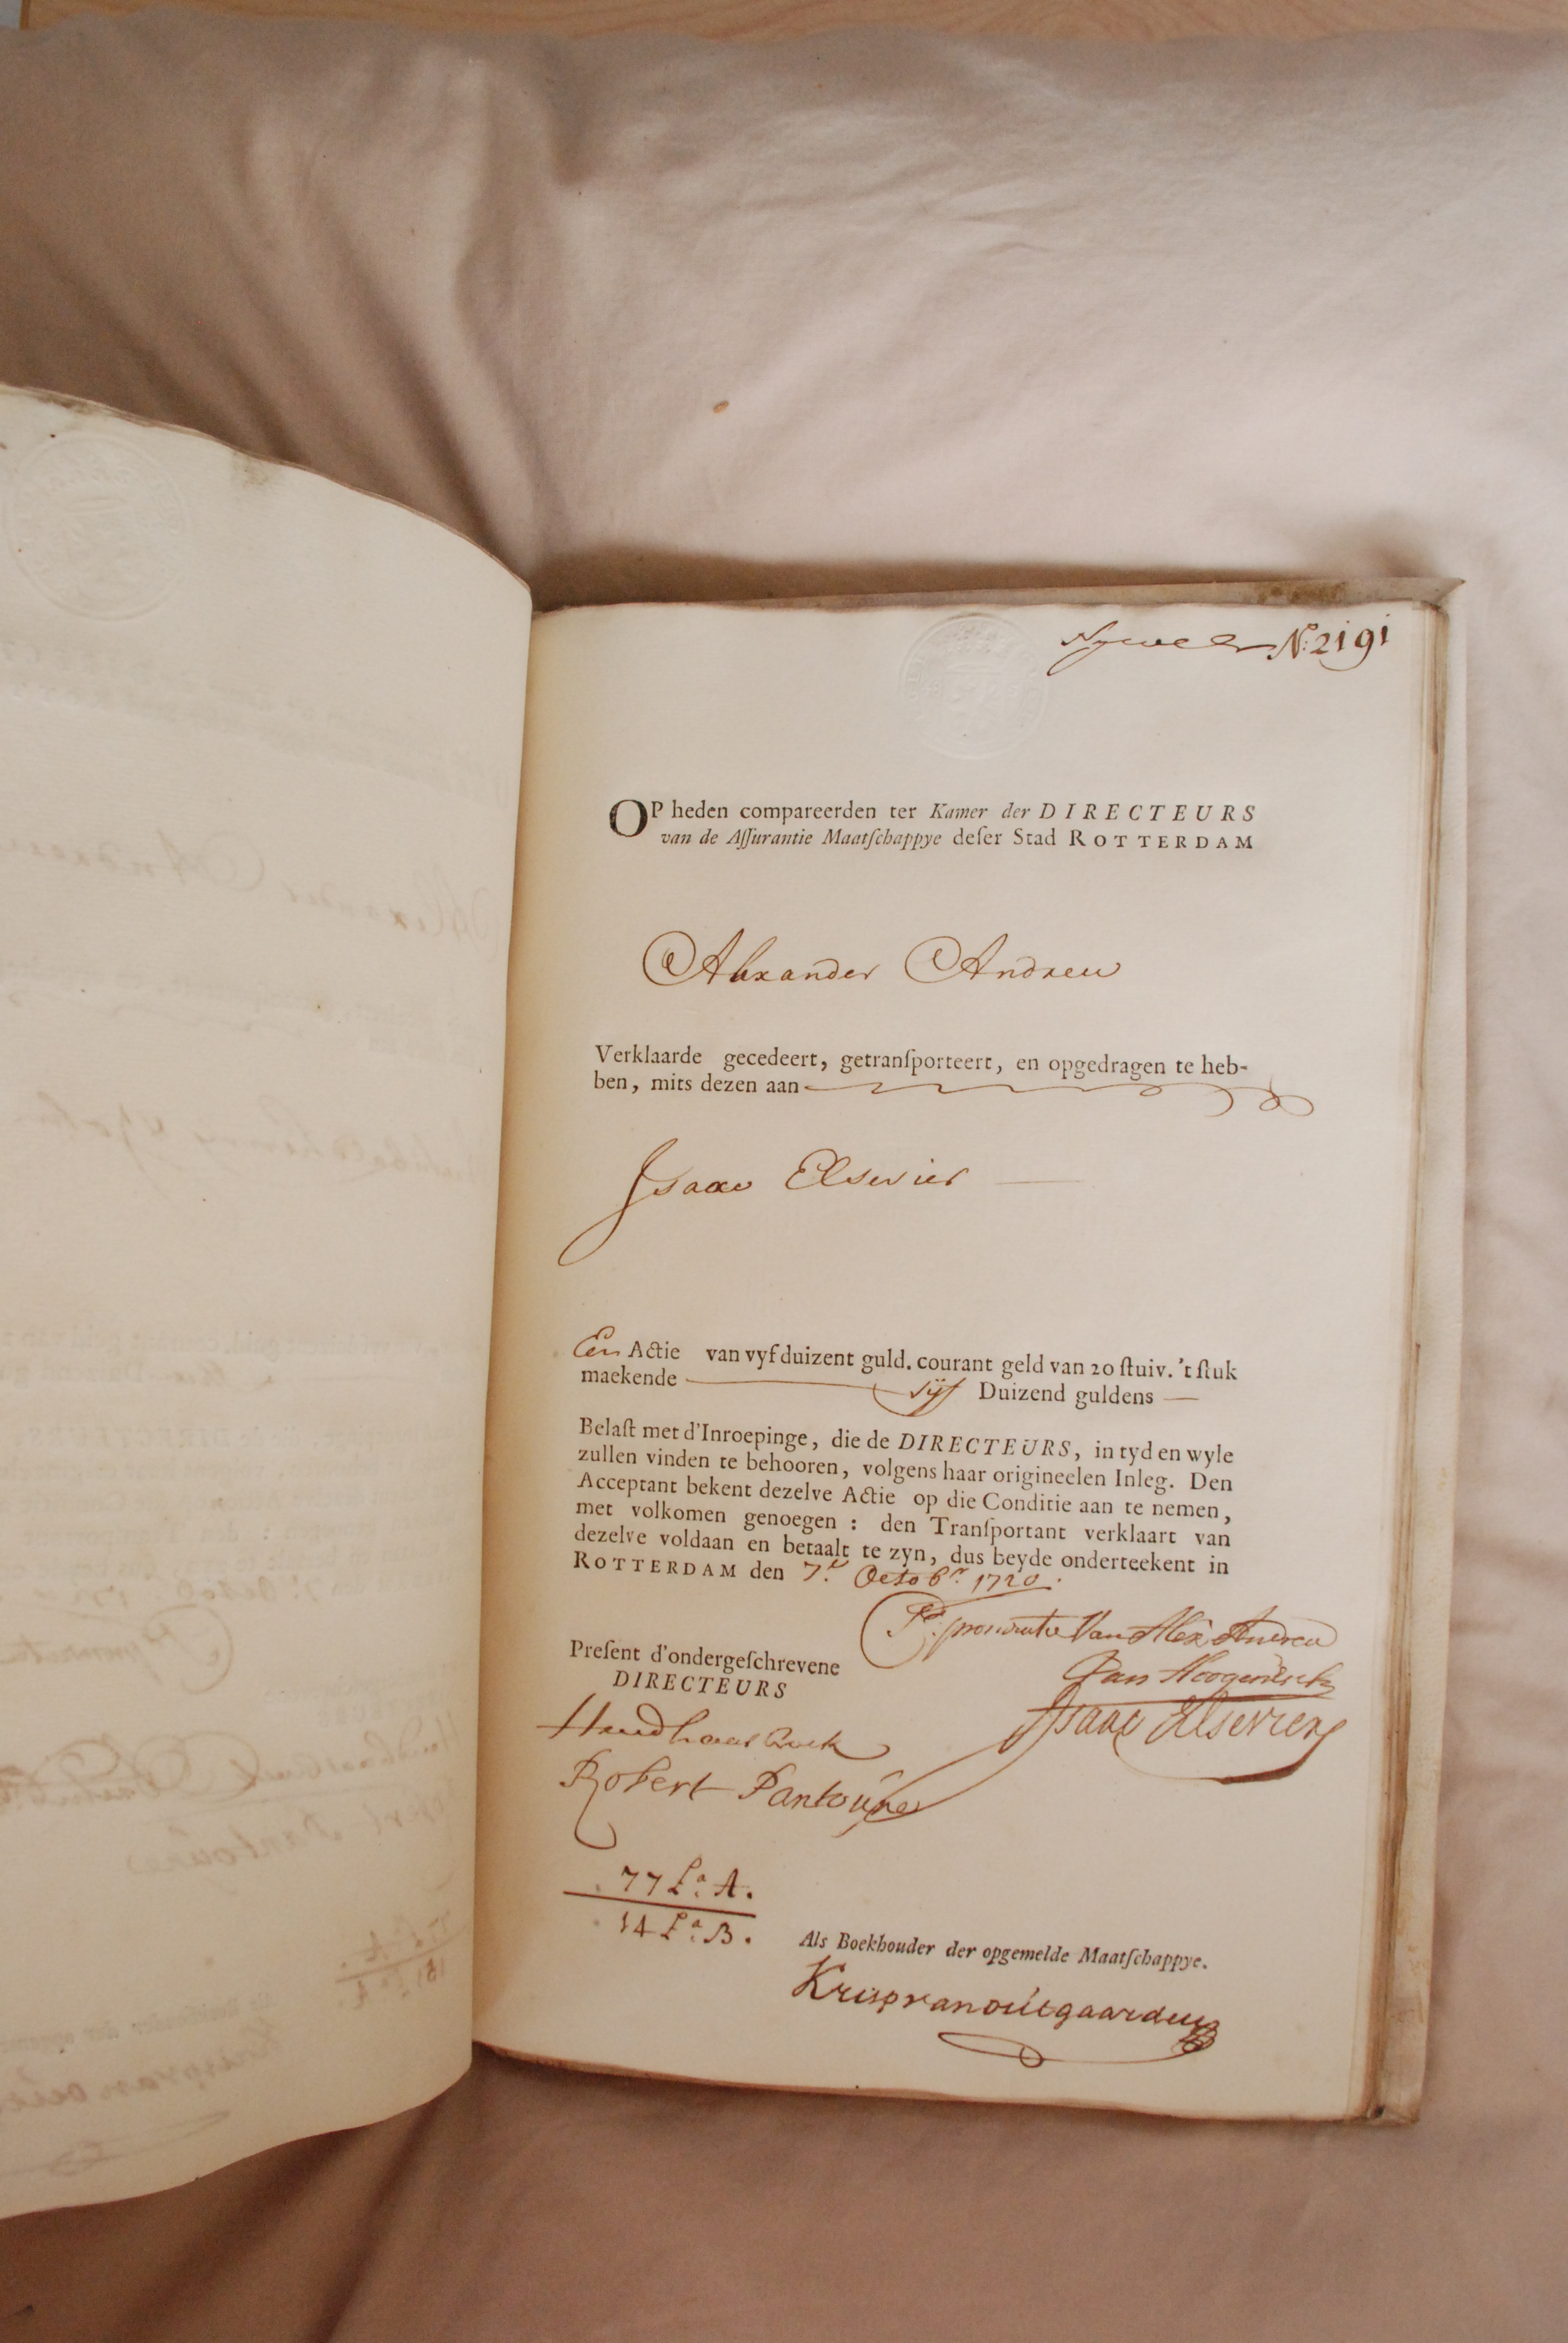 N:2191
OP heden compareerden ter Kamer der DIRECTEURS
van de Aſſurantie Maatſchappye deſer Stad ROTTERDAM
Alexander Andrew
Verklaarde gecedeert, getranſporteert, en opgedragen te heb-
ben, mits dezen aan
Isaac Elsevier
Een Actie van vyf duizent guld. courant geld van 20 ſtuiv. 't ſtuk
maekende Vijf Duizend guldens
Belaſt met d'Inroepinge, die de DIRECTEURS, in tyd en wyle
zullen vinden te behooren, volgens haar origineelen Inleg. Den
Acceptant bekent dezelve Actie op die Conditie aan te nemen,
met volkomen genoegen : den Tranſportant verklaart van
dezelve voldaan en betaalt te zyn, dus beyde onderteekent in
ROTTERDAM den 7.e Octobr. 1720.
Van Alex Andrew
Preſent d'ondergeſchrevene
DIRECTEURS
Isaac Elsevier
Robert
77 La. A.
14 La. B.
Als Boekhouder der opgemelde Maatſchappye.